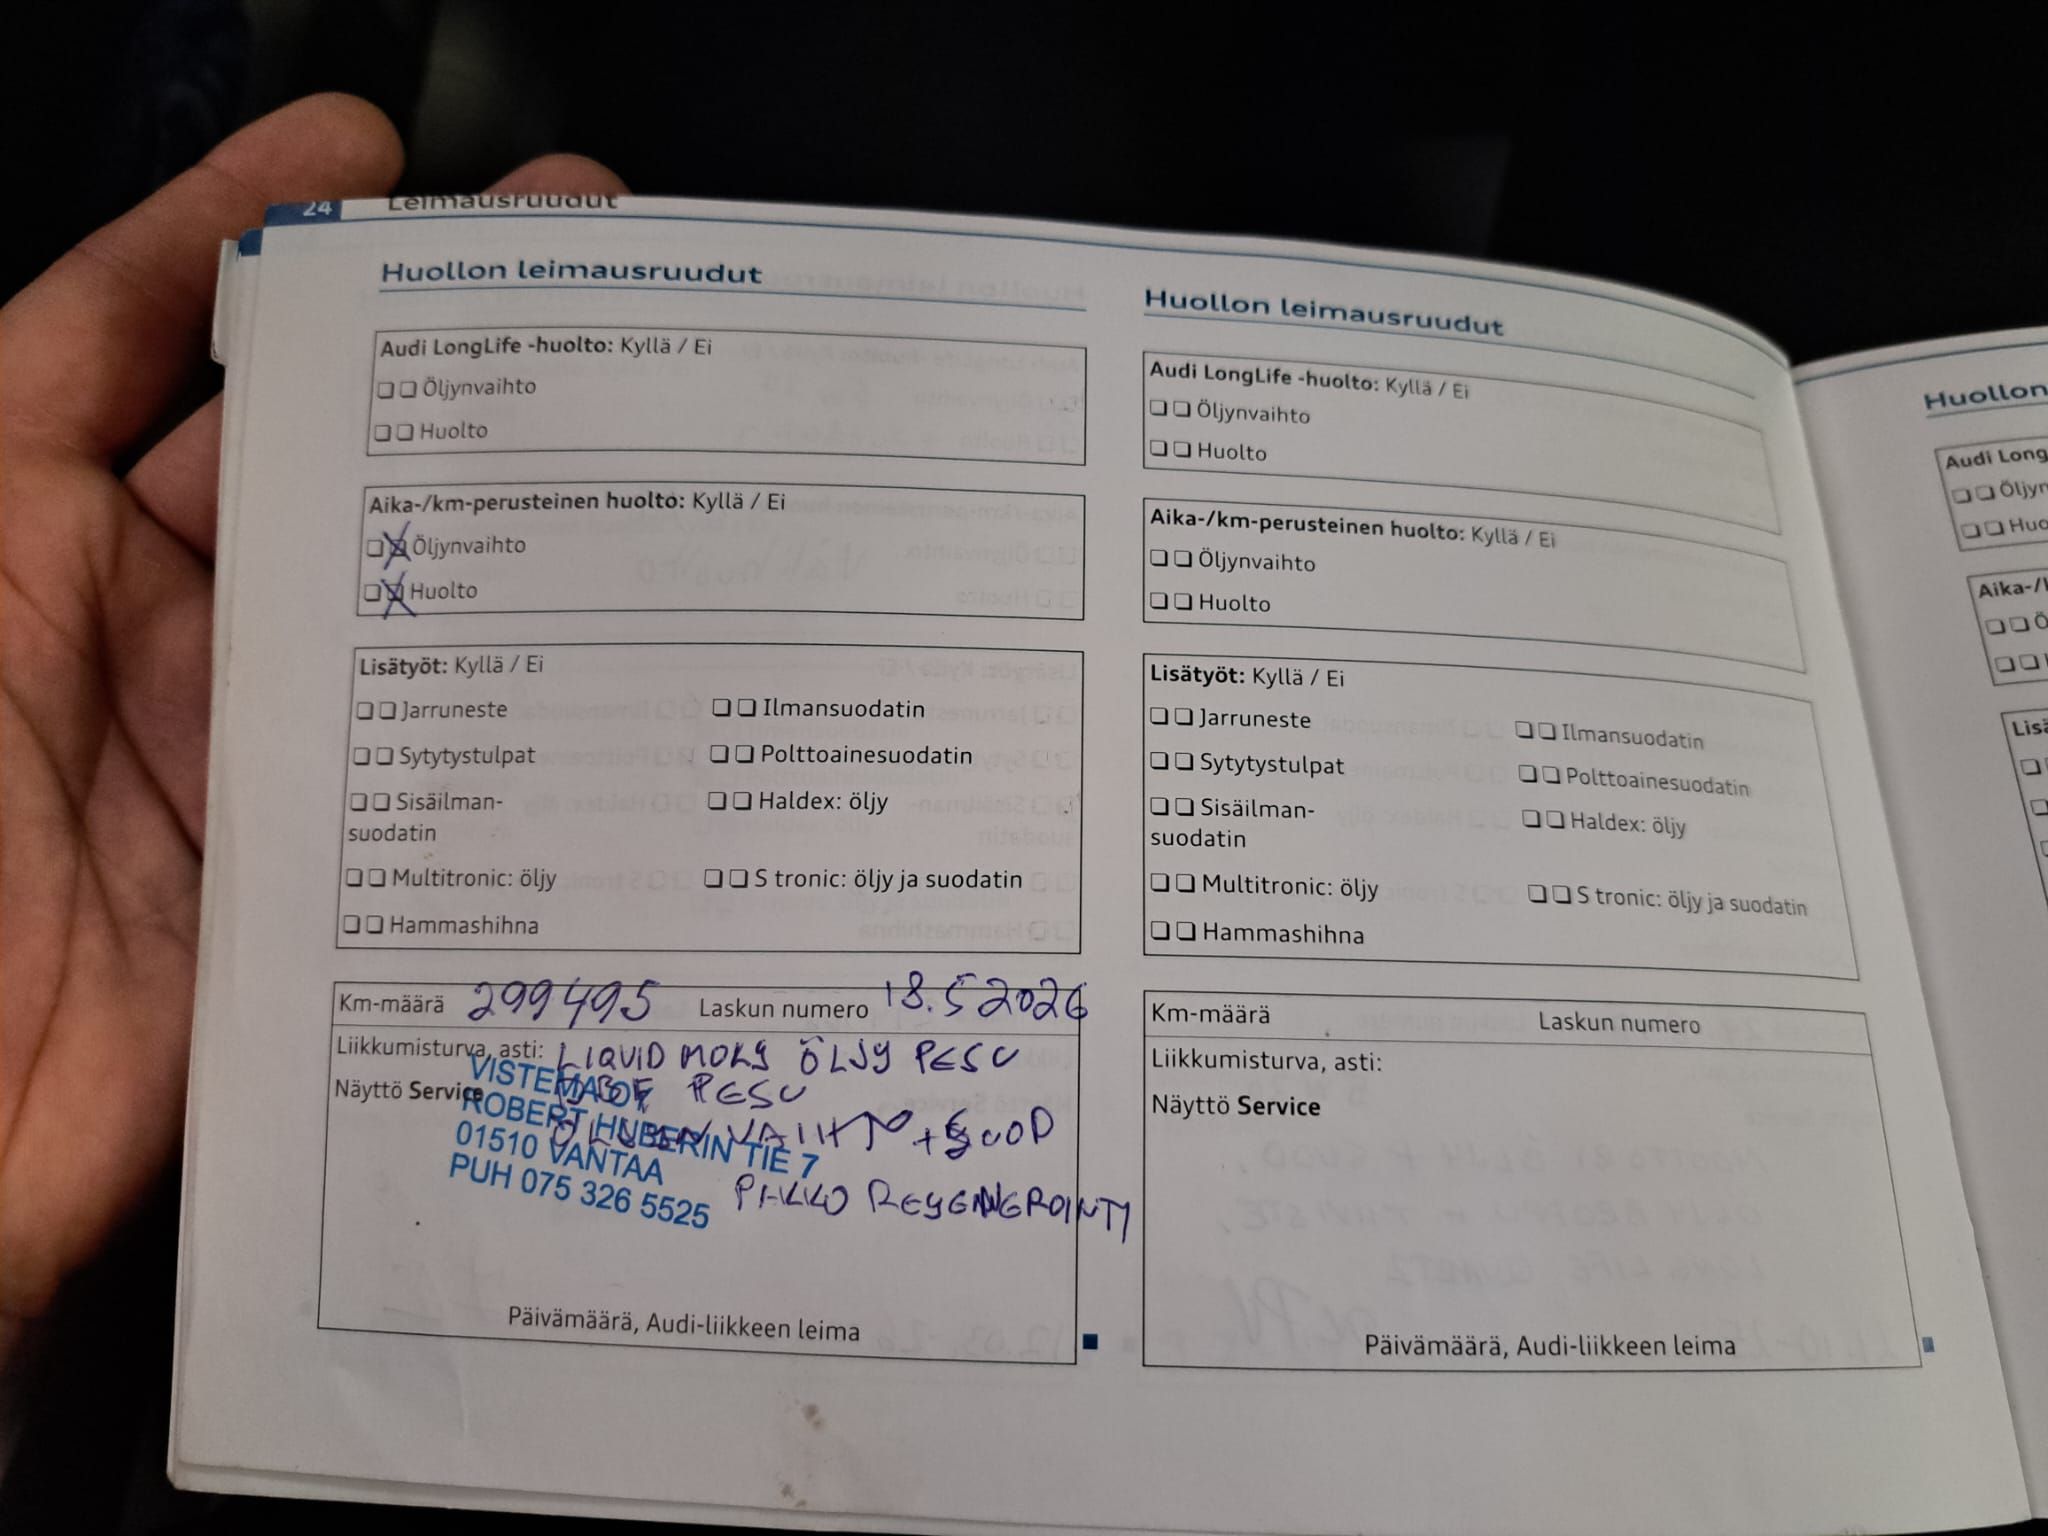 24 Leimausruudut
Huollon leimausruudut
Audi LongLife -huolto: Kyllä / Ei
Öljynvaihto
Huolto
Aika-/km-perusteinen huolto: Kyllä / Ei
Öljynvaihto
Huolto
Lisätyöt: Kyllä / Ei
Jarruneste Ilmansuodatin
Sytytystulpat Polttoainesuodatin
Sisäilman- Haldex: öljy
suodatin
Multitronic: öljy S tronic: öljy ja suodatin
Hammashihna
Km-määrä 299495 Laskun numero 18.5 2026
Liikkumisturva, asti: LIQUID MOLY ÖLJY PESU
Näyttö Service PESU
+ SUOD
PAKKO REGENEROINTI
VISTEMA OY
ROBERT HUBERIN TIE 7
01510 VANTAA
PUH 075 326 5525
Päivämäärä, Audi-liikkeen leima
Huollon leimausruudut
Audi LongLife -huolto: Kyllä / Ei
Öljynvaihto
Huolto
Aika-/km-perusteinen huolto: Kyllä / Ei
Öljynvaihto
Huolto
Lisätyöt: Kyllä / Ei
Jarruneste Ilmansuodatin
Sytytystulpat Polttoainesuodatin
Sisäilman- Haldex: öljy
suodatin
Multitronic: öljy S tronic: öljy ja suodatin
Hammashihna
Km-määrä Laskun numero
Liikkumisturva, asti:
Näyttö Service
Päivämäärä, Audi-liikkeen leima
Huollon
Audi Long
Öljyn
Huo
Aika-/
Lisä